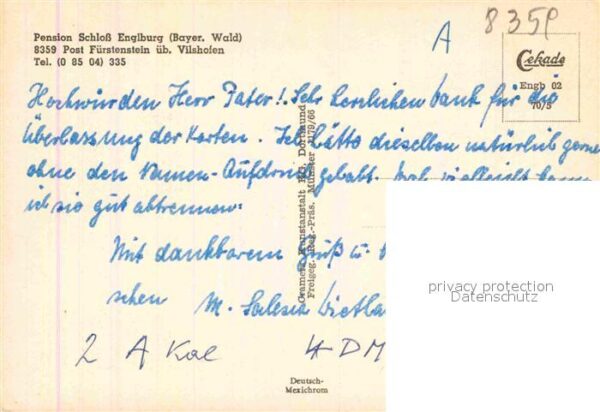 Pension Schloß Englburg (Bayer. Wald)
8359 Post Fürstenstein üb. Vilshofen
Tel. (0 85 04) 335
A
8359
Cekade
Engb 02
70/5
Hochwürden Herr Pater! Sehr herzlichen Dank für die
Überlassung der Karten. Ich hätte dieselben natürlich gerne
ohne den Namen-Aufdruck gehabt. vielleicht kann
ich sie gut abtrennen.
Mit dankbarem Gruß u.
schen
M. Salesia
2 A Kal
4 DM
Cramers Kunstanstalt KG, Dortmund
Freigeg. Reg.-Präs. Münster 2179/66
Deutsch-
Mexichrom
privacy protection
Datenschutz